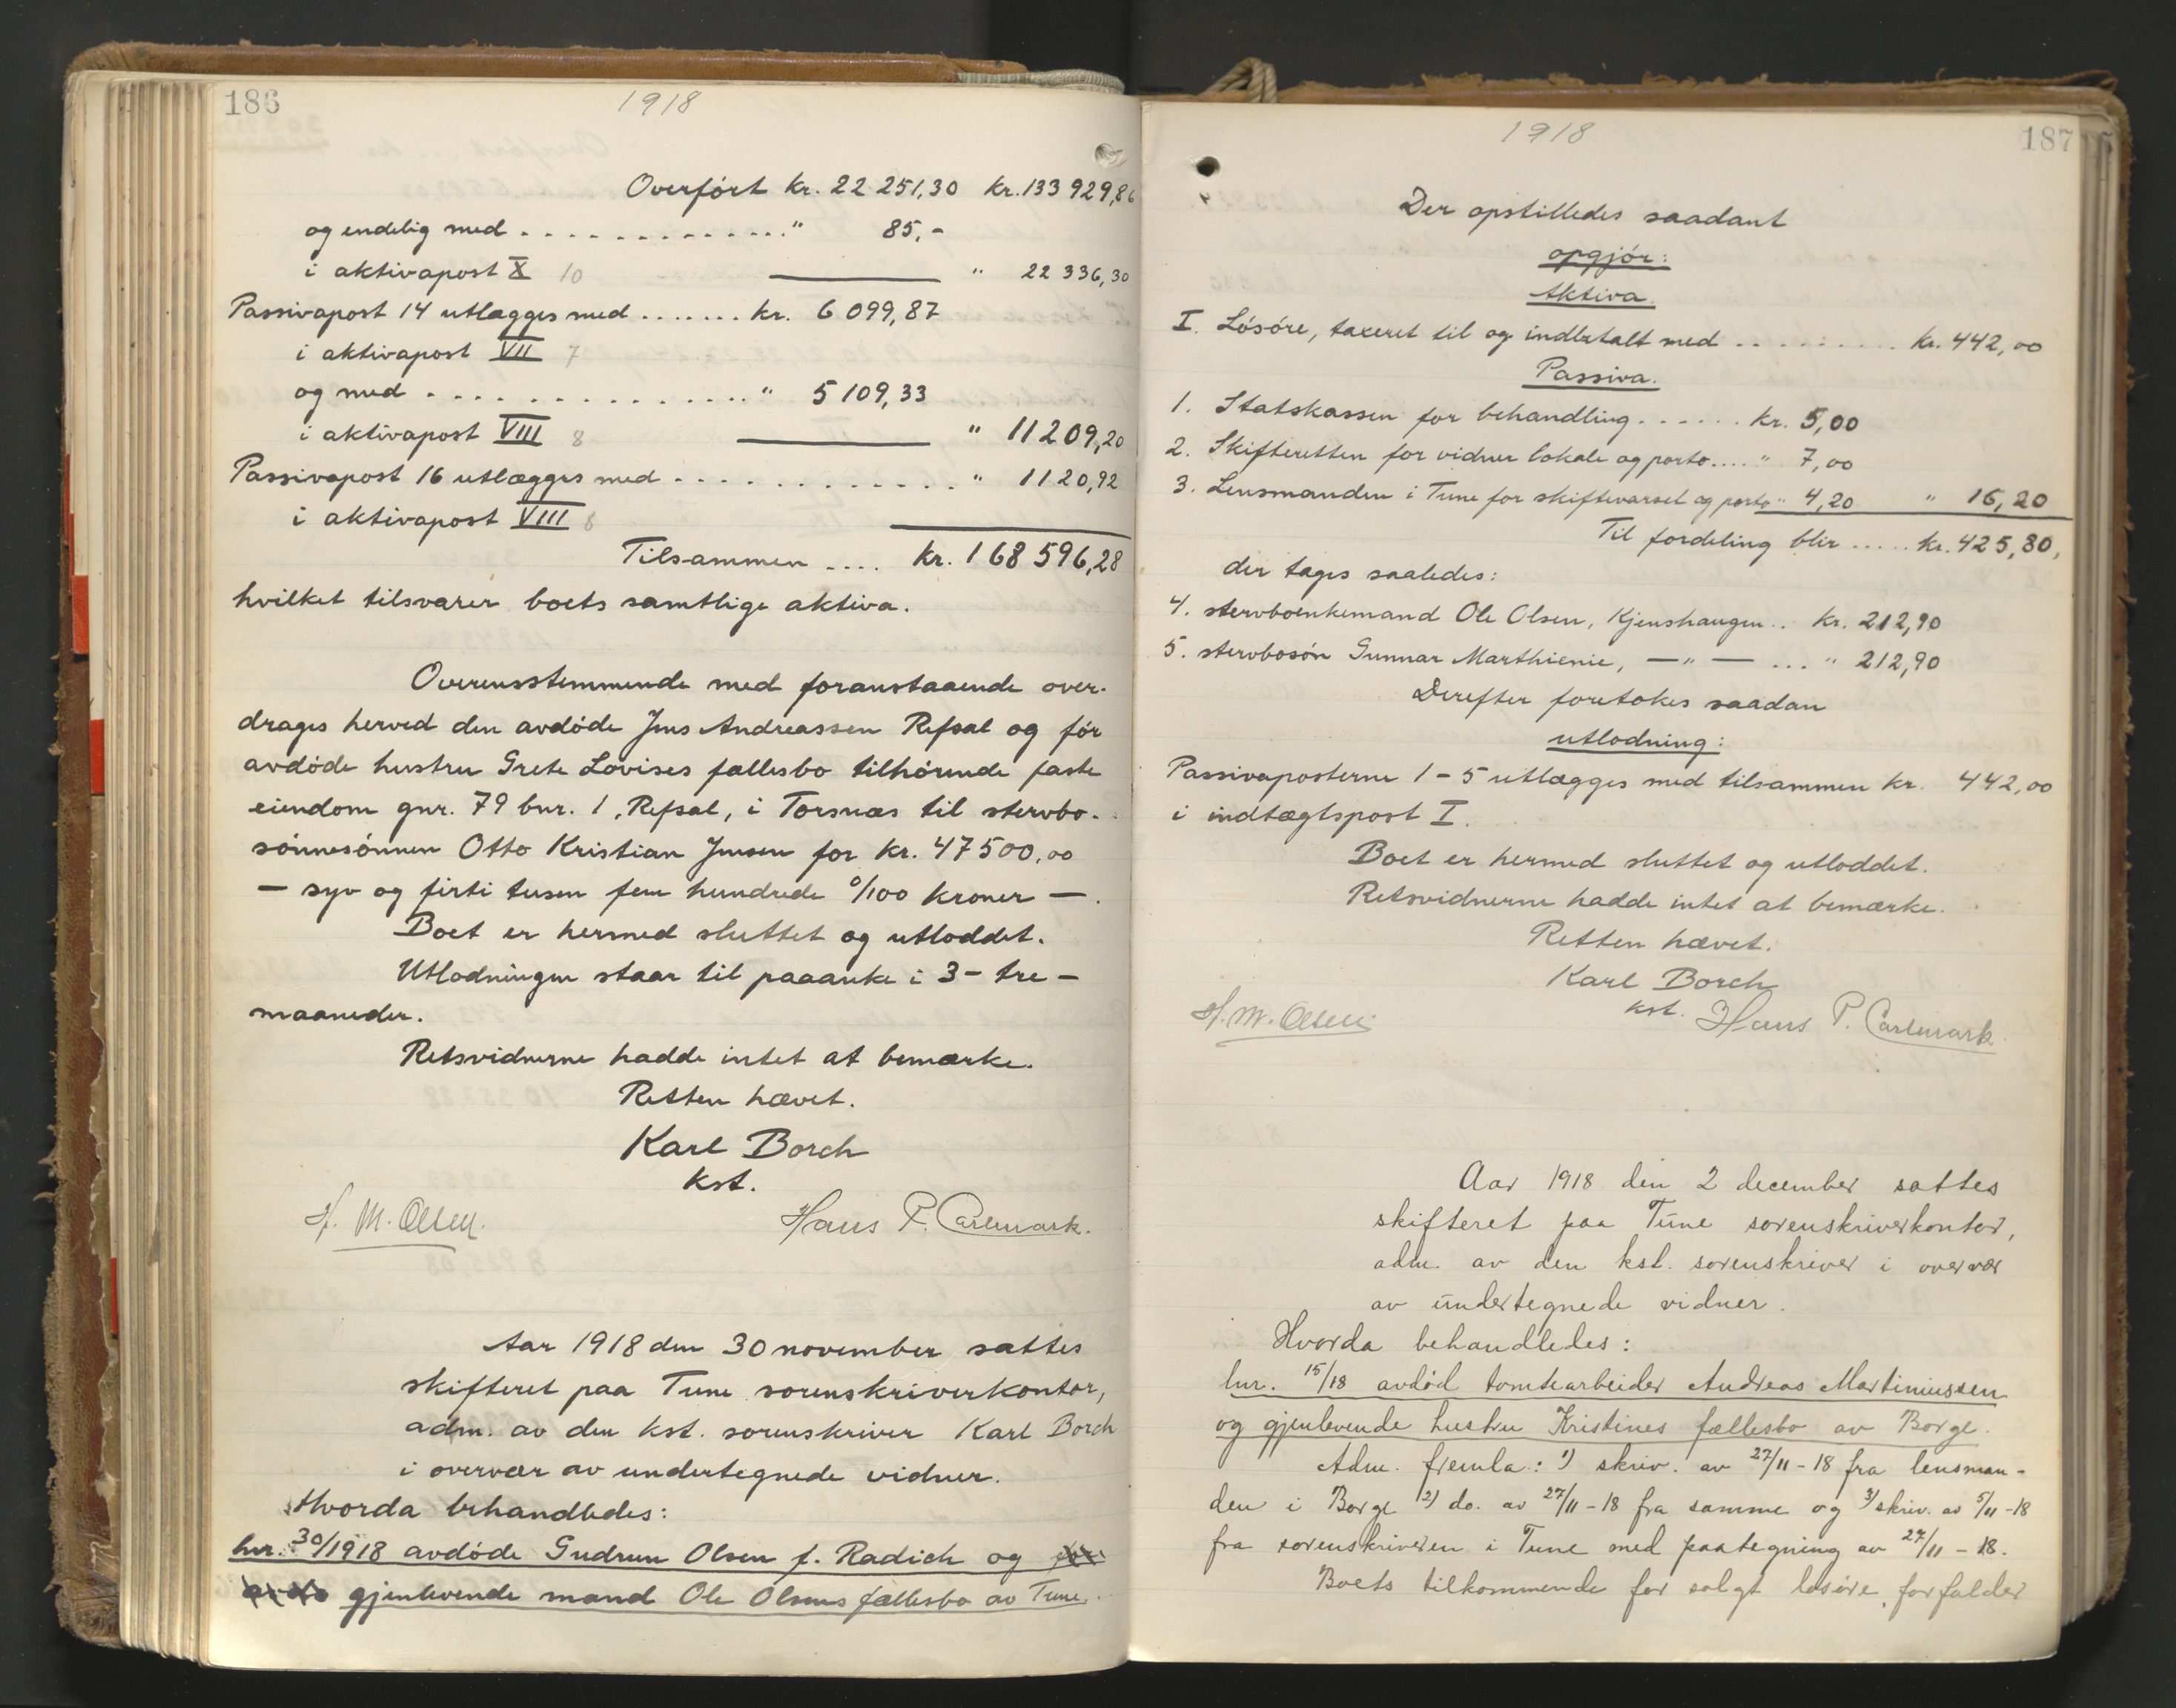 186
1918
Overført kr. 22 251,30 kr. 133 929,86
og endelig med . . . . . . . . . . . . . . " 85,-
i aktivapost X 10 " 22 336,30
Passivapost 14 utlægges med ....... kr. 6 099,87
i aktivapost VII 7
og med . . . . . . . . . . . . . . . . " 5 109,33
i aktivapost VIII 8 " 11 209,20
Passivapost 16 utlægges med . . . . . . . . . . . . . " 1 120,92
i aktivapost VIII 8
Tilsammen .... kr. 168 596,28
hvilket tilsvarer boets samtlige aktiva.
Overensstemmende med foranstaaende over-
drages herved den avdøde Jens Andreassen Refsal og før
avdøde hustru Grete Lovises fællesbo tilhørende faste
eiendom gnr. 79 bnr. 1, Refsal, i Torsnæs til stervbo-
sønnesønnen Otto Kristian Jensen for kr. 47 500,00
— syv og firti tusen fem hundrede 0/100 kroner —.
Boet er hermed sluttet og utloddet.
Utlodningen staar til paaanke i 3 - tre -
maaneder.
Retsvidnerne hadde intet at bemærke.
Retten hævet.
Karl Borch
kst.
H. M. Olsen. Hans P. Carlmark.
Aar 1918 den 30 november sattes
skifteret paa Tune sorenskriverkontor,
adm. av den kst. sorenskriver Karl Borch
i overvær av undertegnede vidner.
Hvorda behandledes:
lnr. 30/1918 avdøde Gudrun Olsen f. Radich og før
avdø gjenlevende mand Ole Olsens fællesbo av Tune.
1918
187
Der opstilledes saadant
opgjør:
Aktiva.
I. Løsøre, taxeret til og indbetalt med . . . . . . . . . kr. 442,00
Passiva.
1. Statskassen for behandling . . . . . . kr. 5,00
2. Skifteretten for vidner lokale og porto .... " 7,00
3. Lensmanden i Tune for skiftevarsel og porto " 4,20 " 16,20
Til fordeling blir ..... kr. 425,80,
der tages saaledes:
4. stervboenkemand Ole Olsen, Kjenshaugen .. kr. 212,90
5. stervbosøn Gunnar Marthienie, — " — ... " 212,90
Derefter foretokes saadan
utlodning:
Passivaposterne 1 - 5 utlægges med tilsammen kr. 442,00
i indtægtspost I.
Boet er hermed sluttet og utloddet.
Retsvidnerne hadde intet at bemærke.
Retten hævet.
Karl Borch
kst.
H. M. Olsen Hans P. Carlmark.
Aar 1918 den 2 december sattes
skifteret paa Tune sorenskriverkontor,
adm. av den kst. sorenskriver i overvær
av undertegnede vidner.
Hvorda behandledes:
lnr. 15/18 avdød tomtearbeider Andreas Martiniussen
og gjenlevende hustru Kristines fællesbo av Borge.
Adm. fremla: 1) skriv. av 27/11 - 18 fra lensman-
den i Borge 2) do. av 27/11 - 18 fra samme og 3) skriv. av 5/11 - 18
fra sorenskriveren i Tune med paategning av 27/11 - 18.
Boets tilkommende for solgt løsøre, forfalder